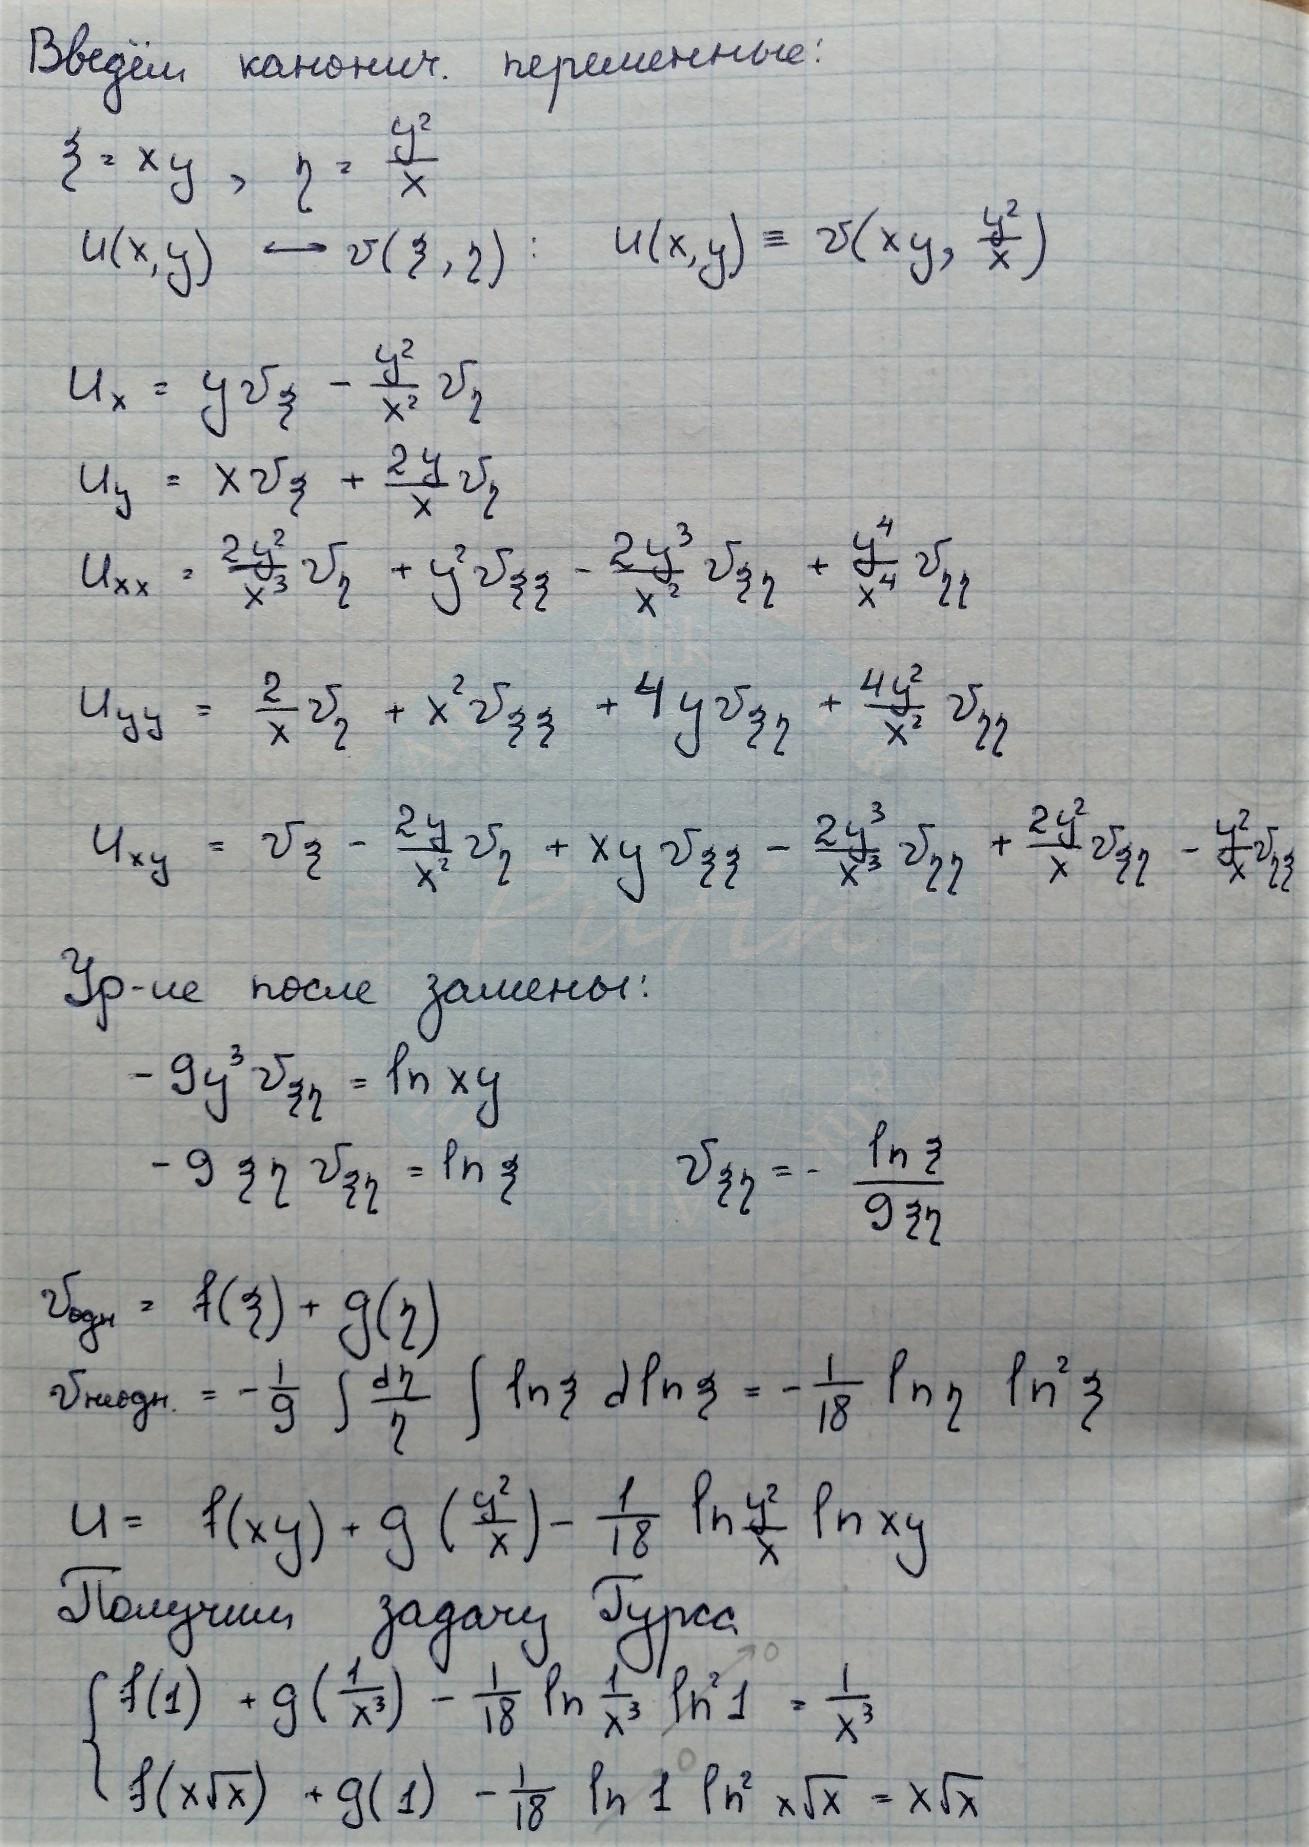 Введём канонич. переменные:
ξ = xy, η = y²/x
u(x,y) ⟷ v(ξ,η): u(x,y) ≡ v(xy, y²/x)
u_x = y v_ξ - y²/x² v_η
u_y = x v_ξ + 2y/x v_η
u_xx = 2y²/x³ v_η + y² v_ξξ - 2y³/x² v_ξη + y⁴/x⁴ v_ηη
u_yy = 2/x v_η + x² v_ξξ + 4y v_ξη + 4y²/x² v_ηη
u_xy = v_ξ - 2y/x² v_η + xy v_ξξ - 2y³/x³ v_ηη + 2y²/x v_ξη - y²/x v_ηξ
Ур-ие после замены:
-9y³ v_ξη = ln xy
-9 ξη v_ξη = ln ξ v_ξη = - ln ξ / 9ξη
v_одн = f(ξ) + g(η)
v_неодн. = -1/9 ∫ dη/η ∫ ln ξ d ln ξ = -1/18 ln η ln² ξ
u = f(xy) + g(y²/x) - 1/18 ln y²/x ln xy
Получим задачу Гурса
f(1) + g(1/x³) - 1/18 ln 1/x³ ln² 1 → 0 = 1/x³
f(x√x) + g(1) - 1/18 ln 1 → 0 ln² x√x = x√x